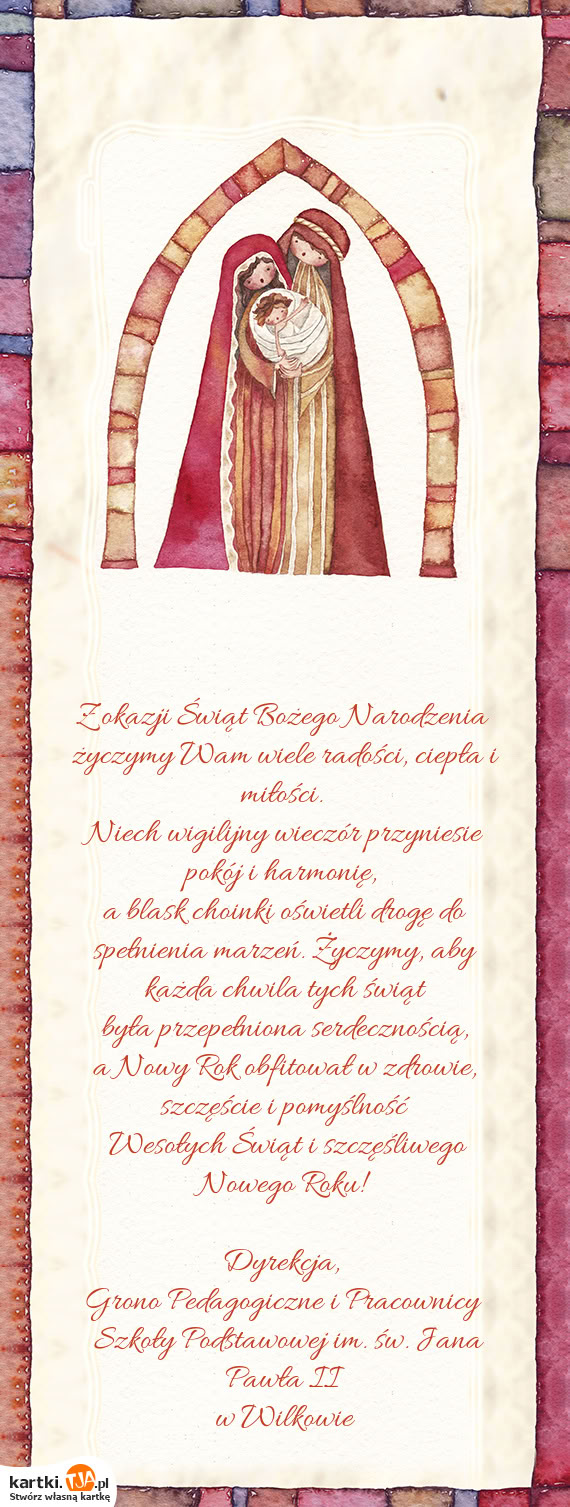 Z okazji Świąt Bożego Narodzenia
życzymy Wam wiele radości, ciepła i
miłości.
Niech wigilijny wieczór przyniesie
pokój i harmonię,
a blask choinki oświetli drogę do
spełnienia marzeń. Życzymy, aby
każda chwila tych świąt
była przepełniona serdecznością,
a Nowy Rok obfitował w zdrowie,
szczęście i pomyślność
Wesołych Świąt i szczęśliwego
Nowego Roku!
Dyrekcja,
Grono Pedagogiczne i Pracownicy
Szkoły Podstawowej im. św. Jana
Pawła II
w Wilkowie
kartki.TJA.pl
Stwórz własną kartkę